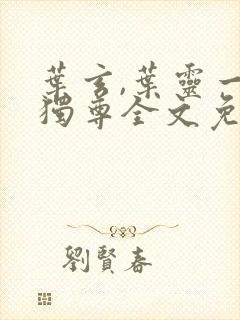 葉言,葉靈一
獨尊全文免
劉賢春